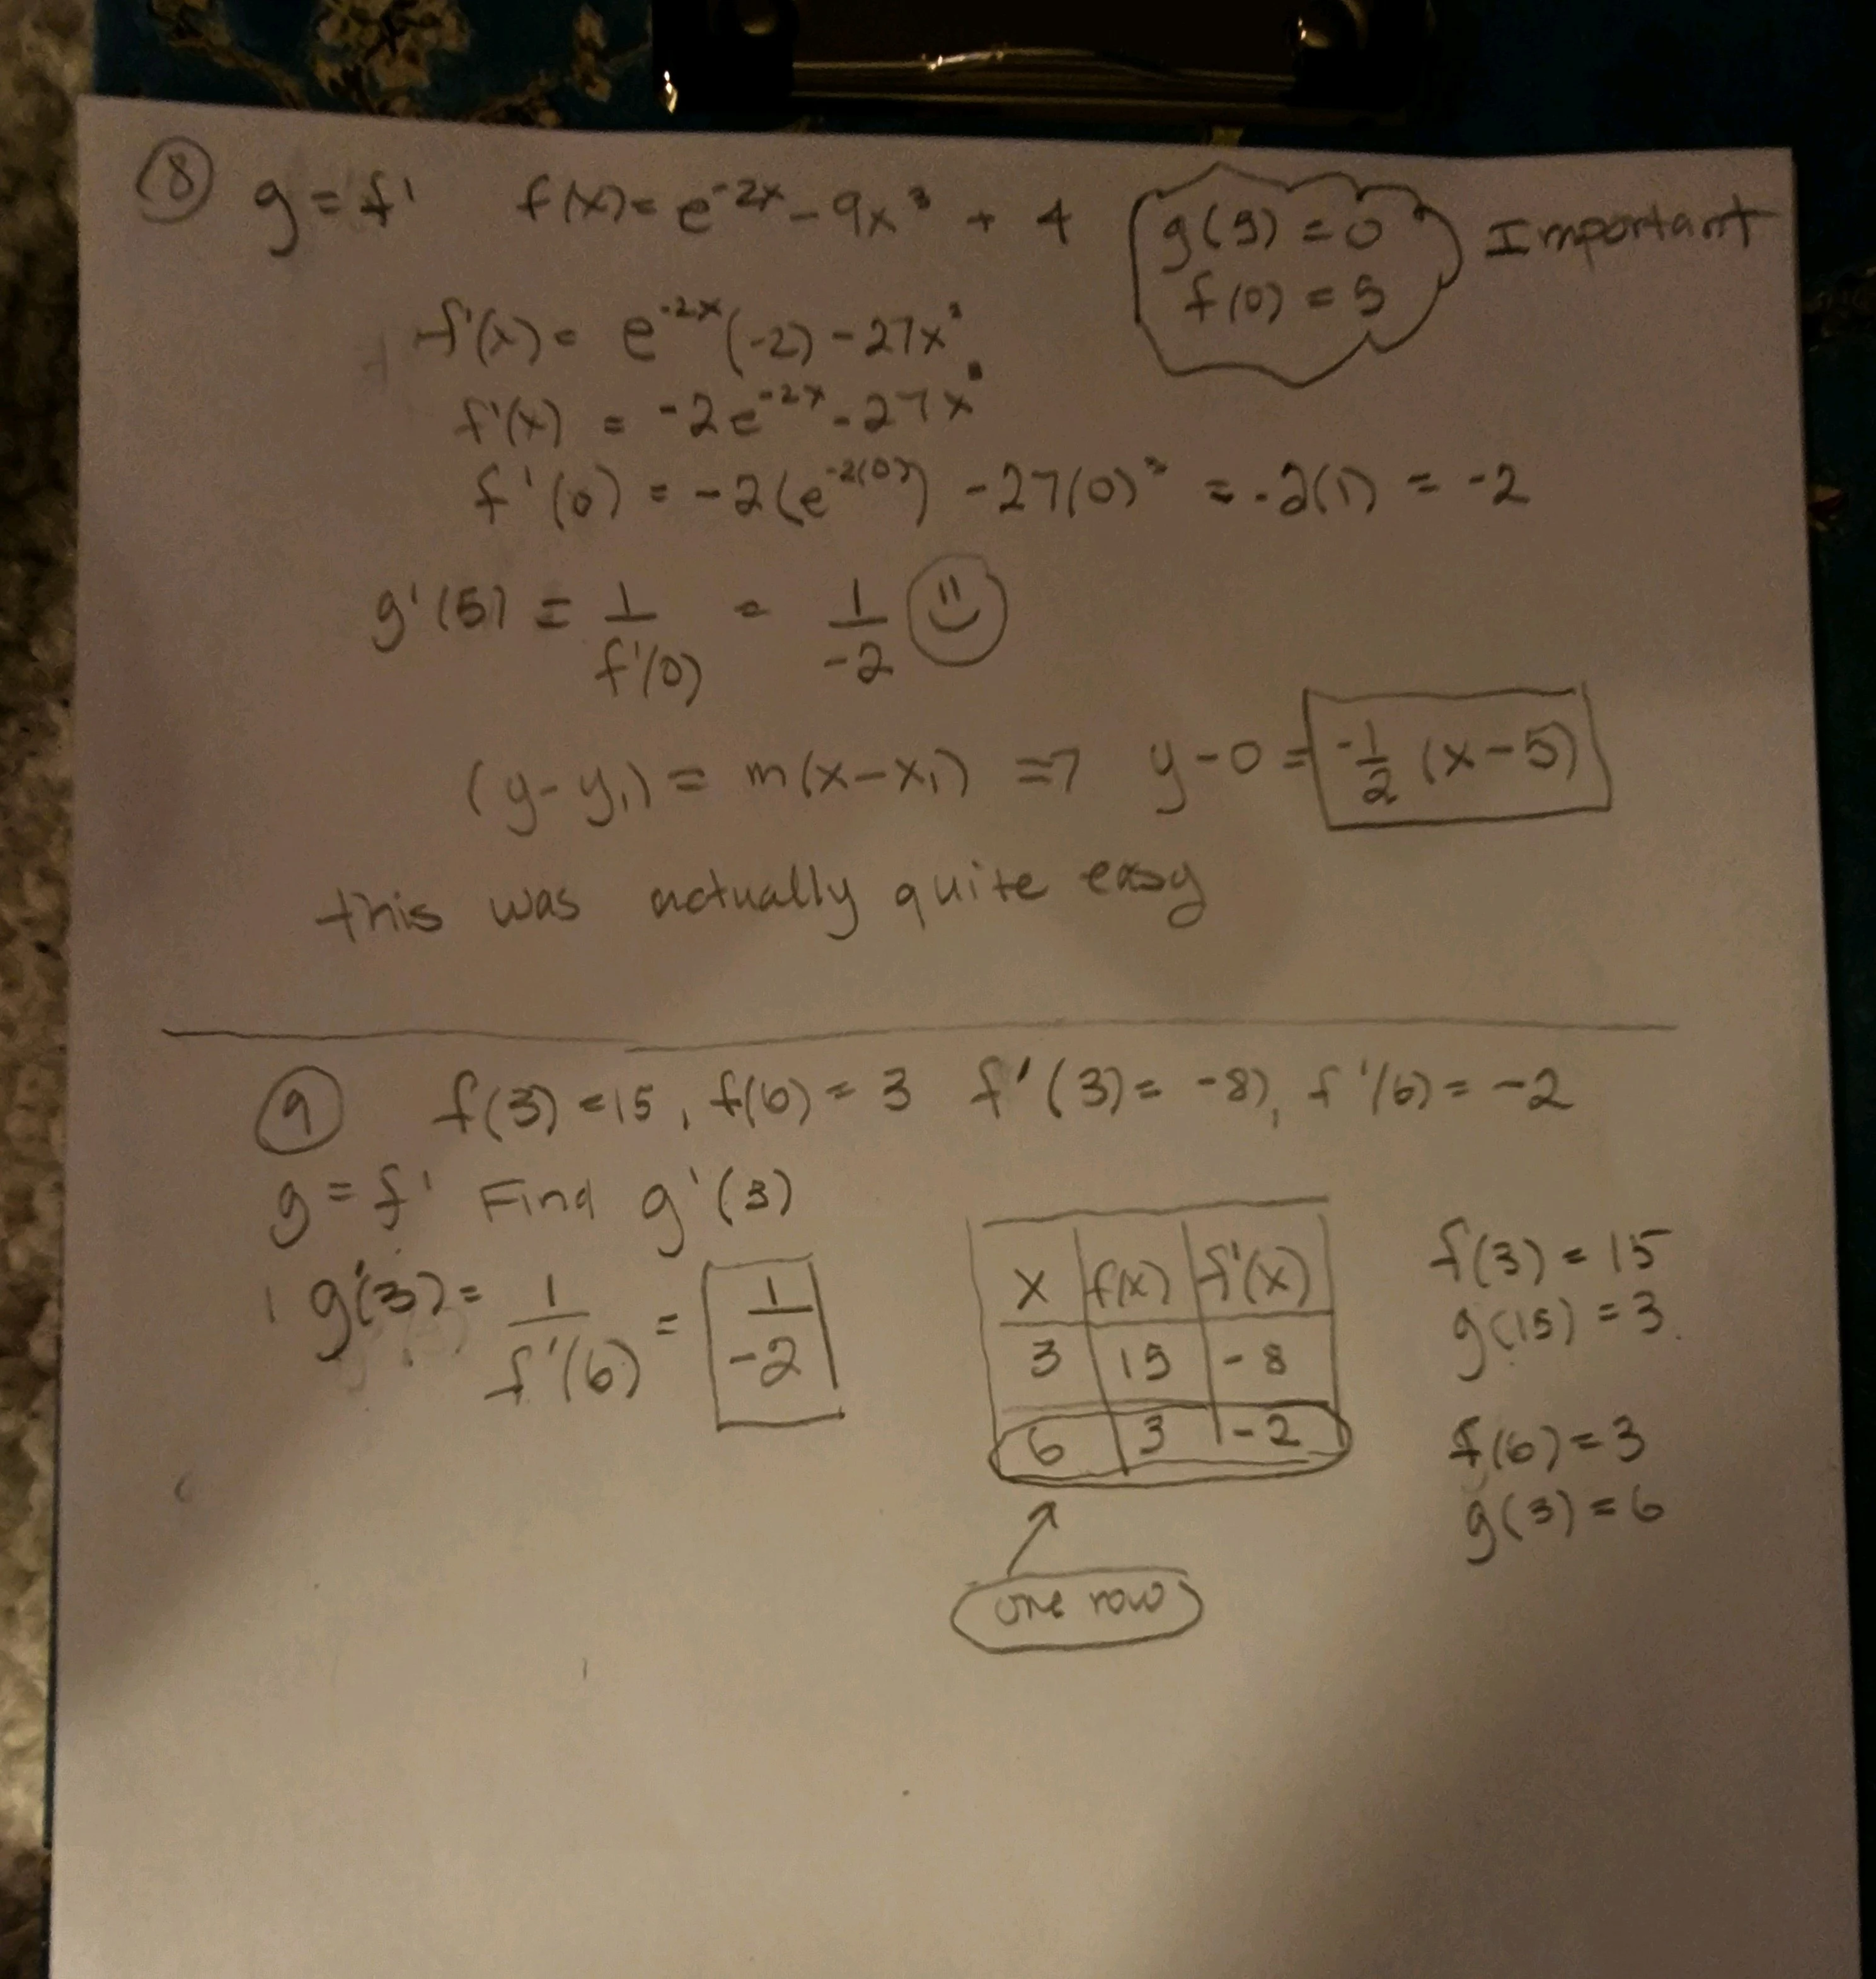 ⑧ g = f' f(x) = e^-2x - 9x^3 + 4 g(5) = 0 Important
f(0) = 5
f'(x) = e^-2x (-2) - 27x^2
f'(x) = -2e^-2x - 27x^2
f'(0) = -2(e^-2(0)) - 27(0)^2 = -2(1) = -2
g'(5) = 1/f'(0) = 1/-2
(y-y₁) = m(x-x₁) => y-0 = -1/2 (x-5)
this was actually quite easy
⑨ f(3) = 15, f(6) = 3 f'(3) = -8, f'(6) = -2
g = f' Find g'(3)
g'(3) = 1/f'(6) = 1/-2
x f(x) f'(x)
3 15 -8
6 3 -2
one row
f(3) = 15
g(15) = 3
f(6) = 3
g(3) = 6